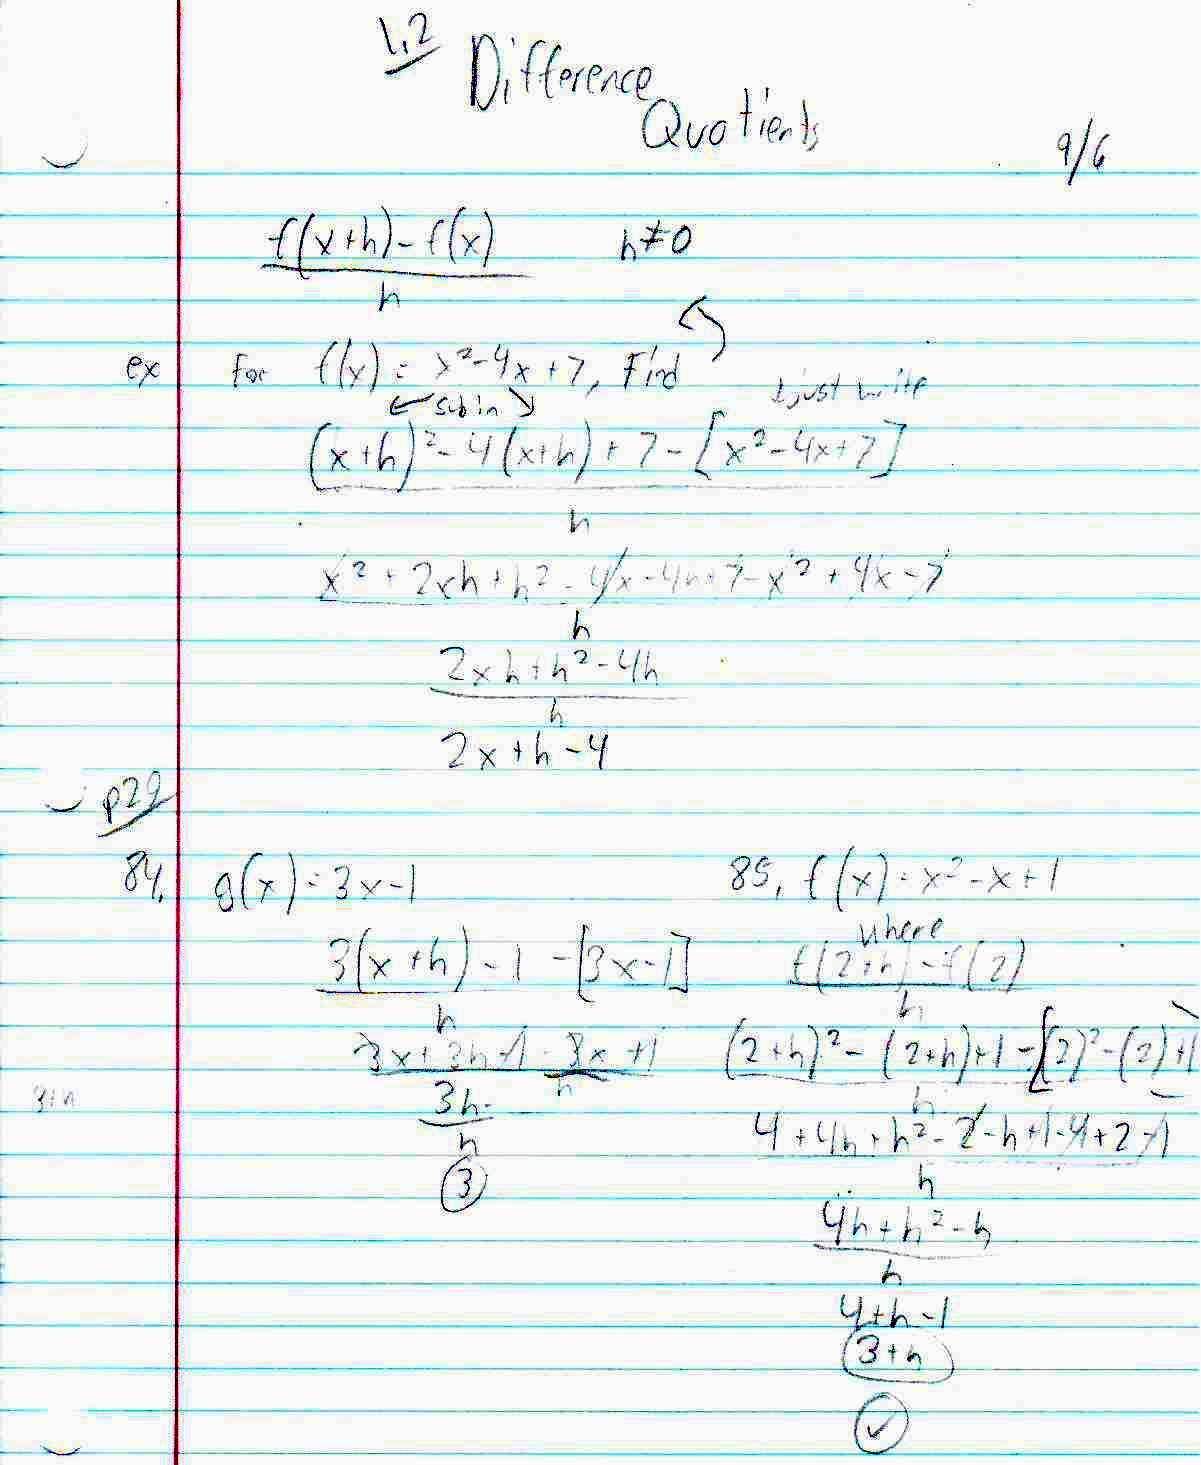 1.2
Difference
Quotients
9/6
f(x+h)-f(x)
h
h≠0
ex For f(x) = x²-4x+7, Find
← sub in → just write
(x+h)²-4(x+h)+7-[x²-4x+7]
h
x²+2xh+h²-4x-4h+7-x²+4x-7
h
2xh+h²-4h
h
2x+h-4
p29
84. g(x)=3x-1
3(x+h)-1-[3x-1]
h
3x+3h-1-3x+1
h
3h
h
3
85. f(x)=x²-x+1
where
f(2+h)-f(2)
h
(2+h)²-(2+h)+1-[(2)²-(2)+1]
h
4+4h+h²-2-h+1-4+2-1
h
4h+h²-h
h
4+h-1
3+h
✓
3+h